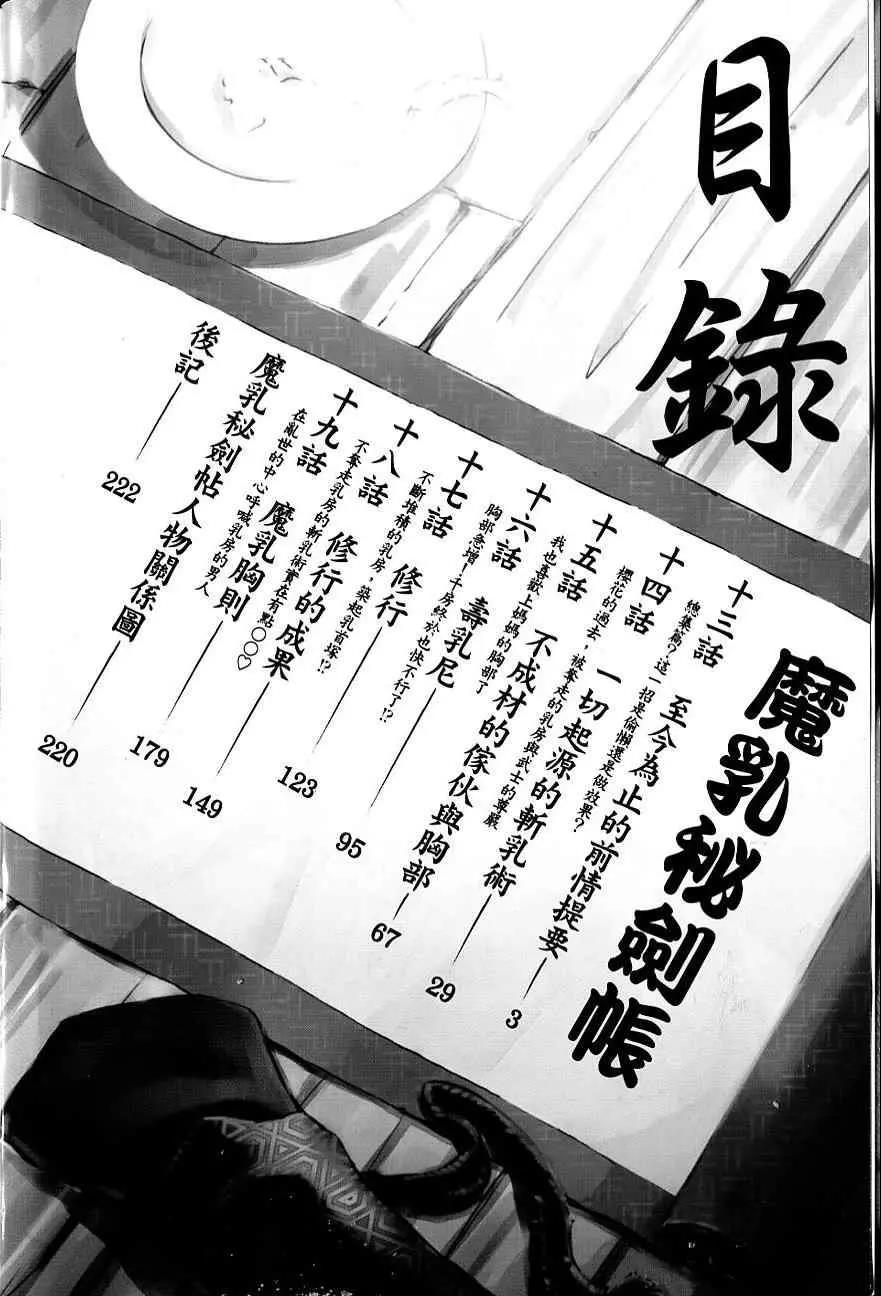 目錄
魔乳秘劍帳
十三話 至今為止的前情提要 3
總集篇？這一招是偷懶還是做效果？
十四話 一切起源的斬乳術 29
櫻花的過去，被奪走的乳房與武士的尊嚴
十五話 不成材的傢伙與胸部 67
我也喜歡上媽媽的胸部了
十六話 壽乳尼 95
胸部急增！千房終於也快不行了!?
十七話 修行 123
不斷堆積的乳房，築起乳首塚!?
十八話 修行的成果 149
不奪走乳房的斬乳術實在有點○○♡
十九話 魔乳胸則 179
在亂世的中心呼喊乳房的男人
魔乳秘劍帖人物關係圖 220
後記 222